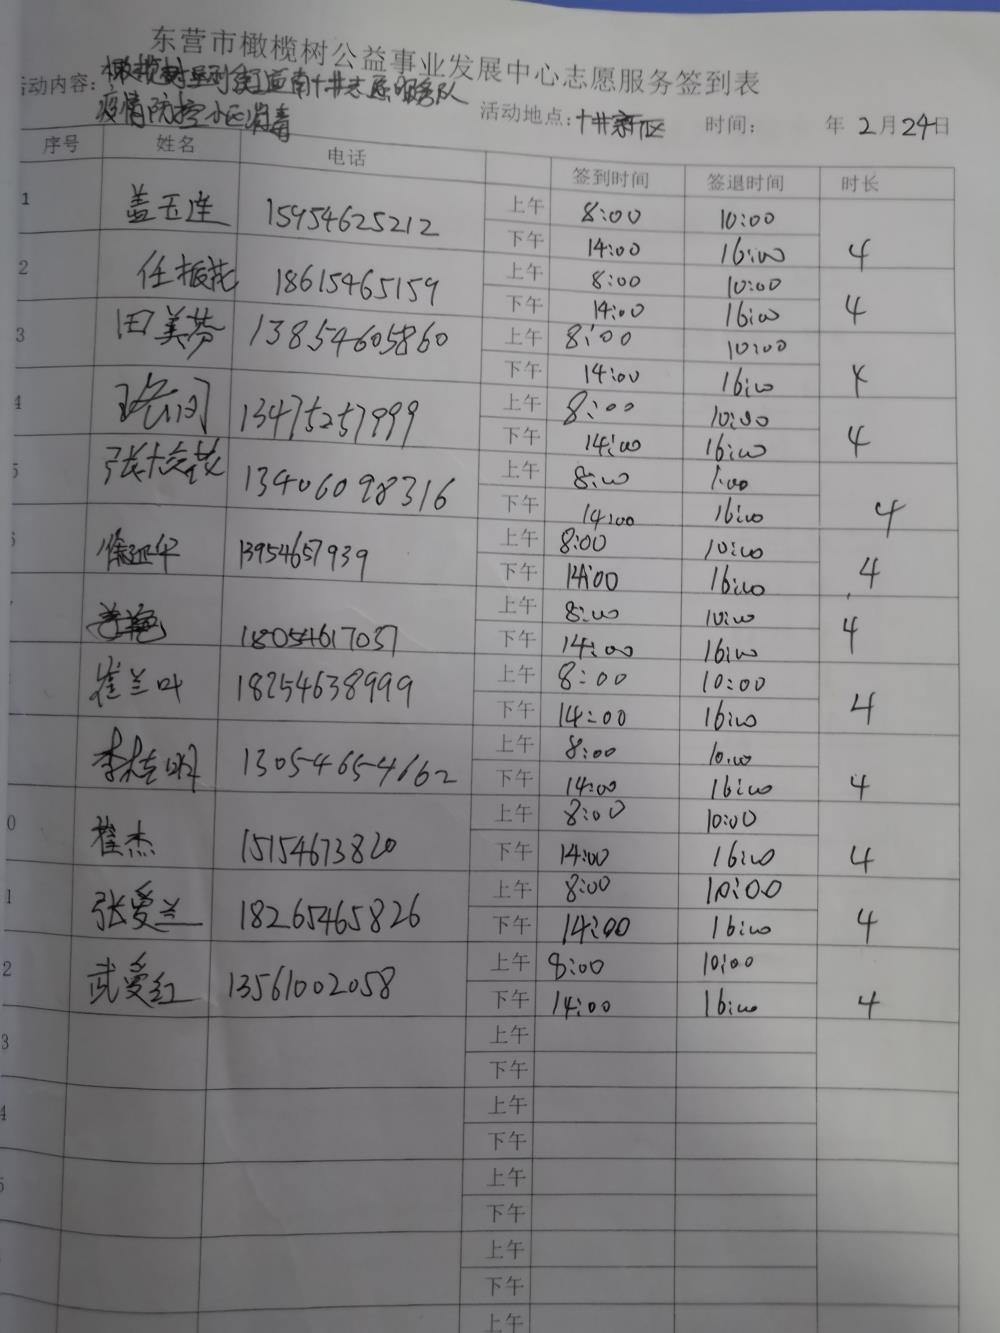 东营市橄榄树公益事业发展中心志愿服务签到表
活动内容：橄榄树垦利街道南十井志愿服务队
疫情防控小区消毒 活动地点：十井新区 时间： 年 2月24日
序号 姓名 电话 签到时间 签退时间 时长
1 盖玉连 15954625212 上午 8:00 10:00
下午 14:00 16:00 4
2 任振花 18615465159 上午 8:00 10:00
下午 14:00 16:00 4
3 田美芬 13854605860 上午 8:00 10:00
下午 14:00 16:00 4
4 13475257999 上午 8:00 10:00
下午 14:00 16:00 4
5 张 13406098316 上午 8:00 1:00
下午 14:00 16:00 4
6 徐延华 13954657939 上午 8:00 10:00
下午 14:00 16:00 4
18054617037 上午 8:00 10:00
下午 14:00 16:00 4
崔兰叶 18254638999 上午 8:00 10:00
下午 14:00 16:00 4
李桂明 13054654662 上午 8:00 10:00
下午 14:00 16:00 4
0 崔杰 15154673820 上午 8:00 10:00
下午 14:00 16:00 4
1 张爱兰 18265465826 上午 8:00 10:00
下午 14:00 16:00 4
2 武爱红 13561002058 上午 8:00 10:00
下午 14:00 16:00 4
3 上午
下午
4 上午
下午
5 上午
下午
上午
下午
上午